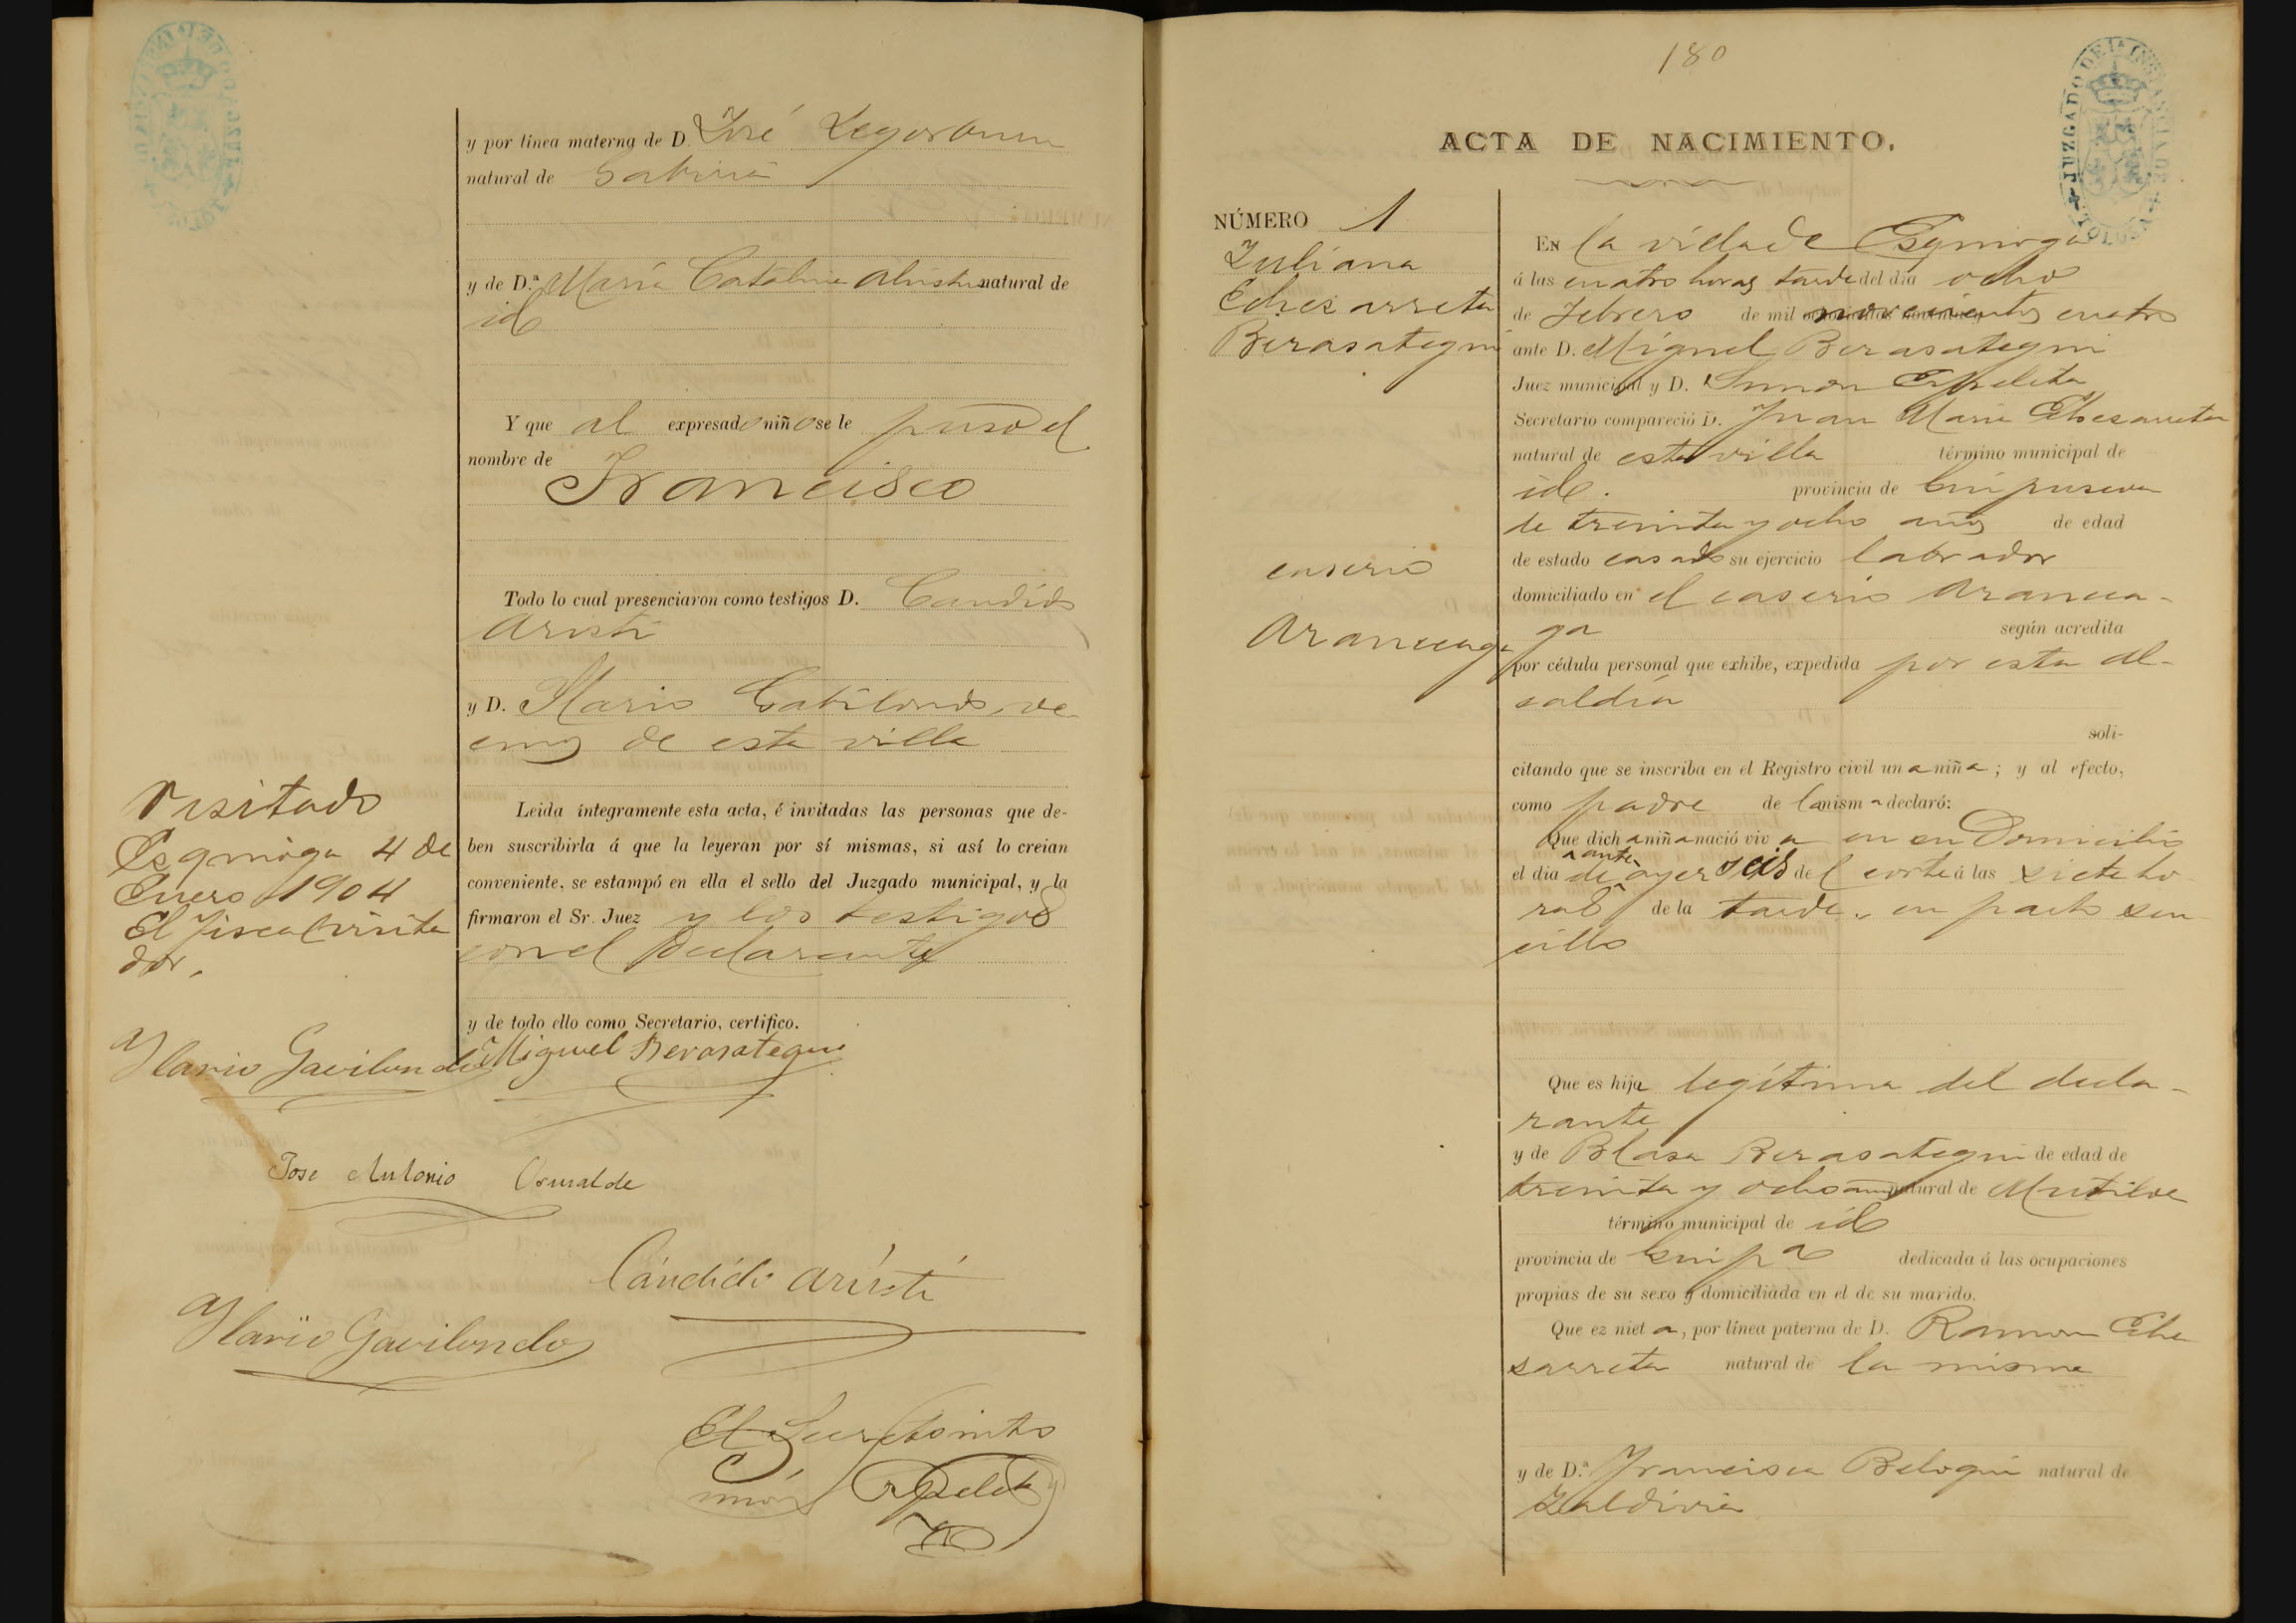 y por línea materna de D. José Legorburu
natural de Gabiria
y de D.ª María Catalina natural de
id
Y que al expresado niño se le puso el
nombre de
Francisco
Todo lo cual presenciaron como testigos D. Candido
Aristi
y D. Ylario Gabilondo, ve-
cinos de esta villa
Leida íntegramente esta acta, é invitadas las personas que de-
ben suscribirla á que la leyeran por sí mismas, si así lo creian
conveniente, se estampó en ella el sello del Juzgado municipal, y la
firmaron el Sr. Juez y los testigos
con el declarante
y de todo ello como Secretario, certifico.
Visitado
Ezquioga 4 de
Enero 1904
El Fiscal visita
dor,
Ylario Gavilondo
Miguel Berasategui
Jose Antonio
Cándido Aristi
Ylario Gavilondo
El Secretario
Simón Ezpeleta
180
JUZGADO DE 1ª INSTANCIA DE TOLOSA
ACTA DE NACIMIENTO.
NÚMERO 1
Juliana
Echezarreta
Berasategui
caserio
Aranceaga
EN la villa de Ezquioga
á las cuatro horas tarde del día ocho
de Febrero de mil novecientos cuatro
ante D. Miguel Berasategui
Juez municipal y D. Simon Ezpeleta
Secretario compareció D. Juan Maria Echezarreta
natural de esta villa término municipal de
id. provincia de Guipuzcoa
de treinta y ocho años de edad
de estado casado su ejercicio labrador
domiciliado en el caserio Arancea-
ga según acredita
por cédula personal que exhibe, expedida por esta Al-
caldía
soli-
citando que se inscriba en el Registro civil una niña; y al efecto,
como padre de la misma declaró:
Que dicha niña nació viva en su Domicilio
el dia de anteayer seis del corte á las siete ho
ras de la tarde, en parto sen
cillo
Que es hija legítima del decla-
rante
y de Blasa Berasategui de edad de
treinta y ocho años natural de Mutiloa
término municipal de id
provincia de Guipª dedicada á las ocupaciones
propias de su sexo y domiciliada en el de su marido.
Que ez nieta, por línea paterna de D. Ramon Eche
zarreta natural de la misma
y de D.ª Francisca Beloqui natural de
Zaldivia